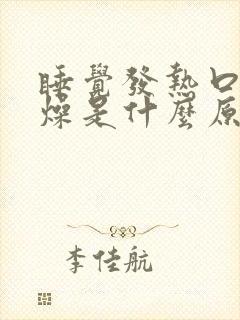 睡覺發熱口
燥是什麼原
李佳航